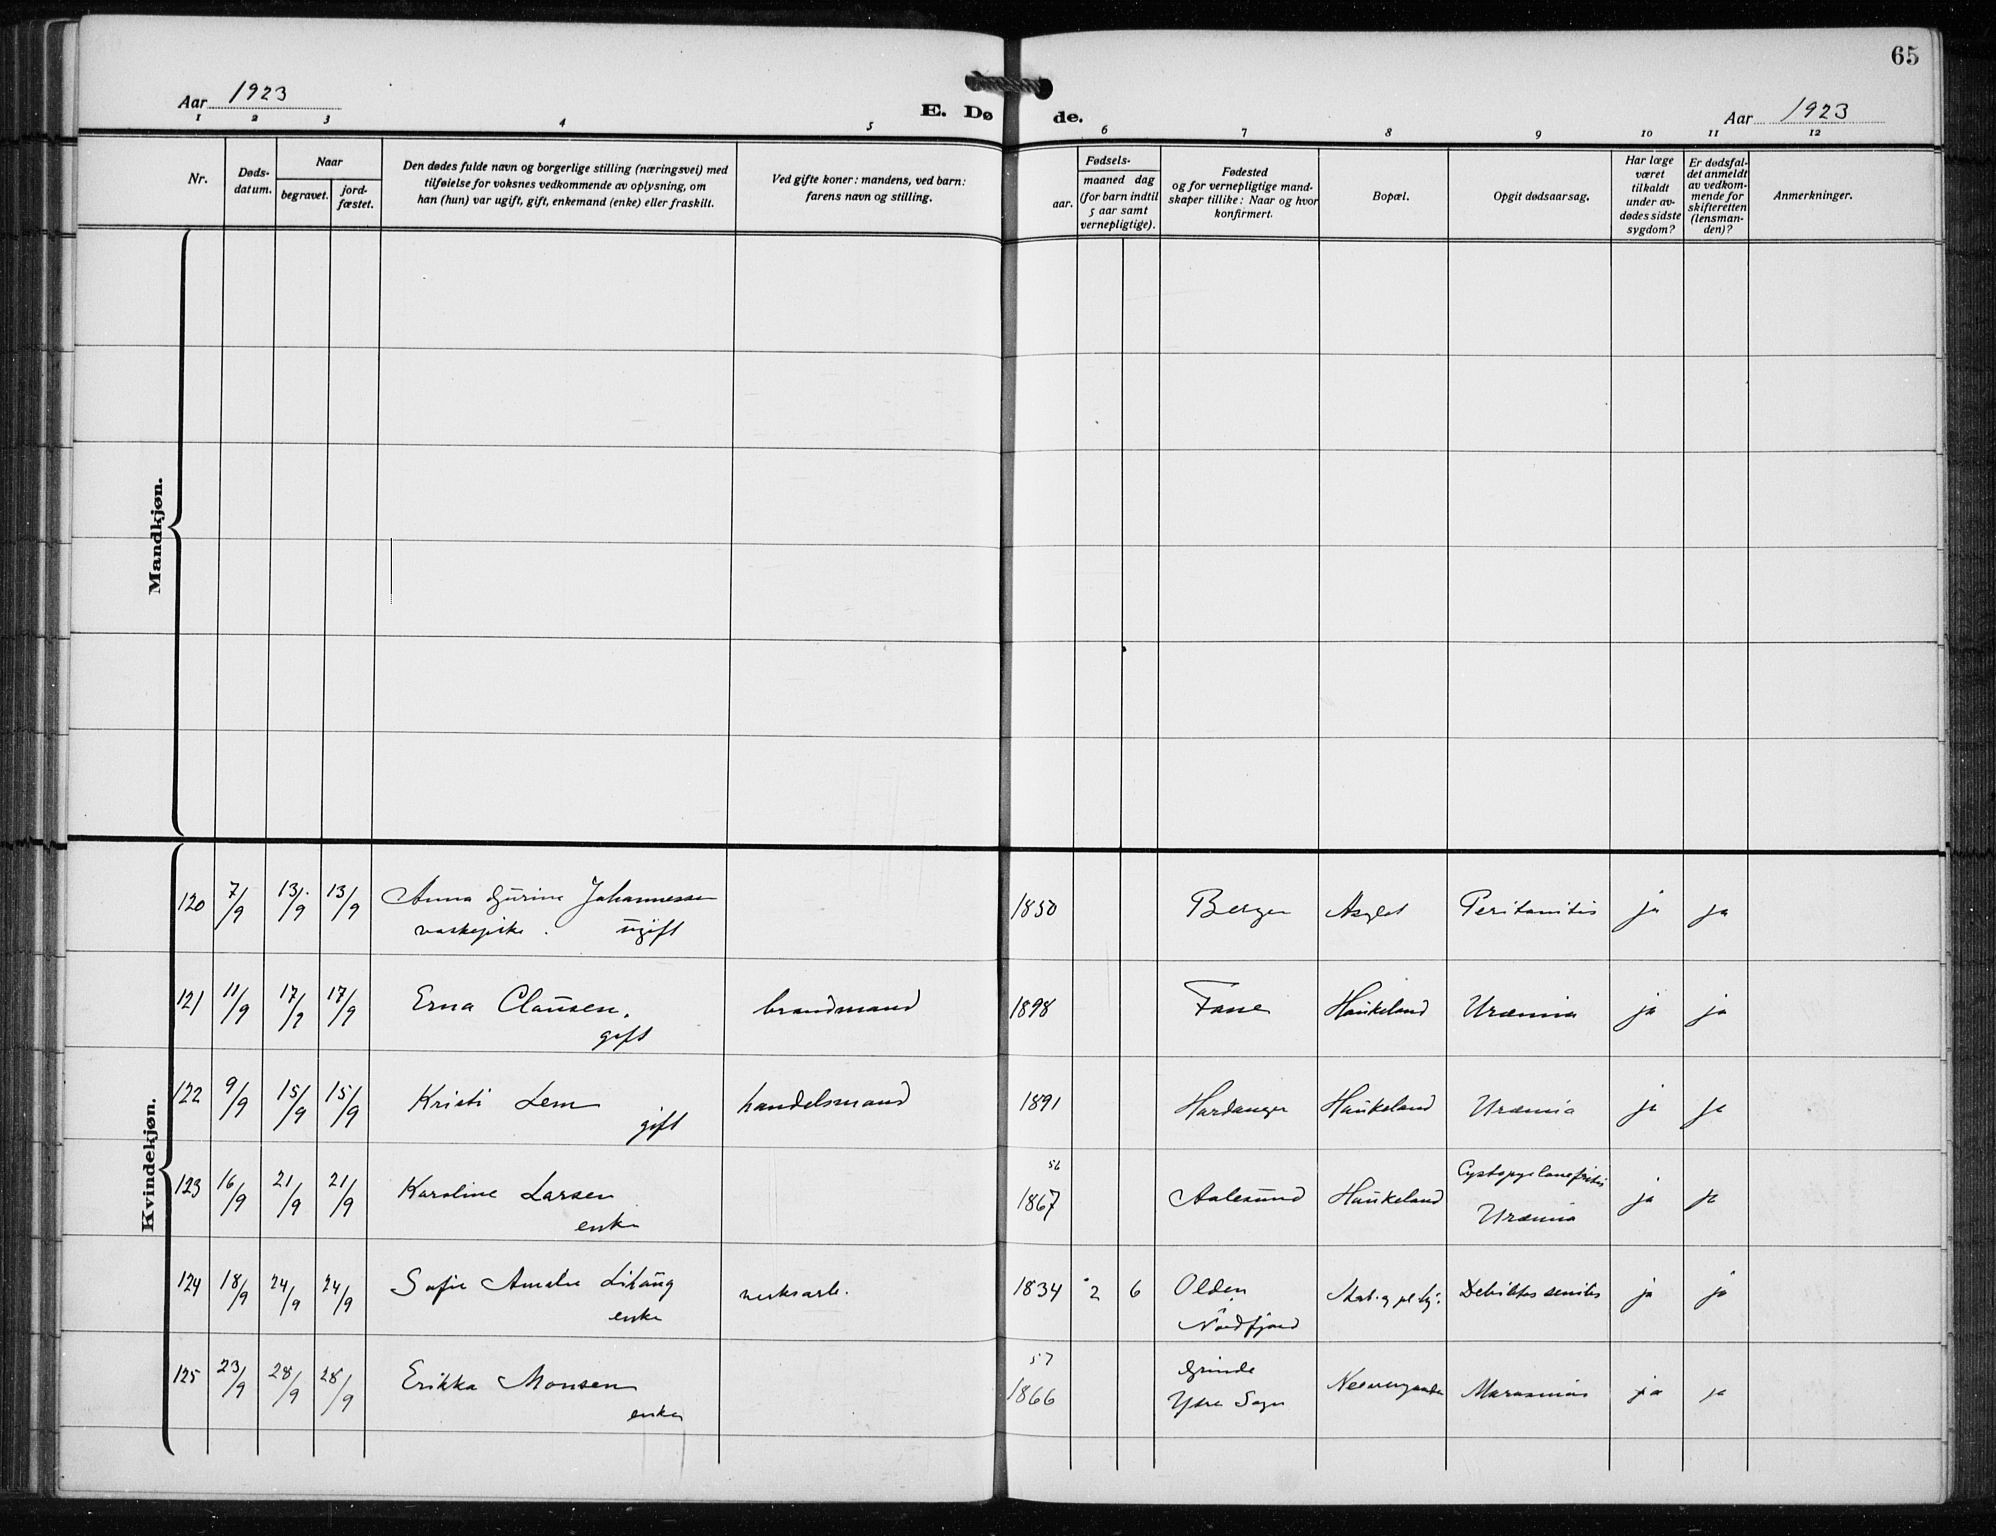 65
Aar 1923
E. Dø de.
Aar 1923
1 2 3 4 5 6 7 8 9 10 11 12
Nr.
Døds-
datum.
Naar
begravet.
jord-
fæstet.
Den dødes fulde navn og borgerlige stilling (næringsvei) med
tilføielse for voksnes vedkommende av oplysning, om
han (hun) var ugift, gift, enkemand (enke) eller fraskilt.
Ved gifte koner: mandens, ved barn:
farens navn og stilling.
Fødsels-
aar.
maaned dag
(for barn indtil
5 aar samt
vernepligtige).
Fødested
og for vernepligtige mand-
skaper tillike: Naar og hvor
konfirmert.
Bopæl.
Opgit dødsaarsag.
Har læge
været
tilkaldt
under av-
dødes sidste
sygdom?
Er dødsfal-
det anmeldt
av vedkom-
mende for
skifteretten
(lensman-
den)?
Anmerkninger.
Mandkjøn.
Kvindekjøn.
120 7/9 13/9 13/9 Anna Gurine Johannessen 1850 Bergen Asylet Peritonitis ja ja
vaskepike. ugift
121 11/9 17/9 17/9 Erna Clausen. brandmand 1898 Fane Haukeland Uræmia ja ja
gift
122 9/9 15/9 15/9 Kristi Lem handelsmand 1891 Hardanger Haukeland Uræmia ja ja
gift
56 Cystopyelonefritis
123 16/9 21/9 21/9 Karoline Larsen 1867 Aalesund Haukeland ja ja
enke Uræmia
124 18/9 24/9 24/9 Sofie Amalie verksarb. 1834 2 6 Olden Debilitas senilis ja ja
enke Nordfjord
57 Grinde
125 23/9 28/9 28/9 Erikka Monsen 1866 Ytre Sogn Marasmus ja ja
enke